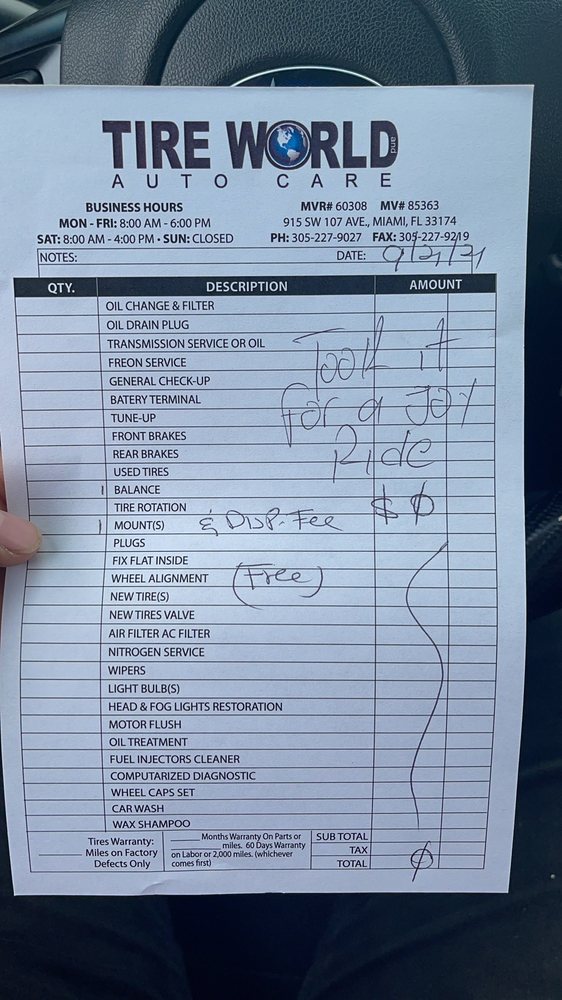 TIRE WORLD and
AUTO CARE
BUSINESS HOURS
MON - FRI: 8:00 AM - 6:00 PM
SAT: 8:00 AM - 4:00 PM • SUN: CLOSED
MVR# 60308 MV# 85363
915 SW 107 AVE., MIAMI, FL 33174
PH: 305-227-9027 FAX: 305-227-9219
NOTES: DATE: 9/21/21
QTY. DESCRIPTION AMOUNT
OIL CHANGE & FILTER
OIL DRAIN PLUG
TRANSMISSION SERVICE OR OIL
FREON SERVICE
GENERAL CHECK-UP
BATERY TERMINAL
TUNE-UP
FRONT BRAKES
REAR BRAKES
USED TIRES
Took it
for a Joy
Ride
1 BALANCE
TIRE ROTATION $ 0
1 MOUNT(S) & DISP. Fee
PLUGS
FIX FLAT INSIDE
WHEEL ALIGNMENT (Free)
NEW TIRE(S)
NEW TIRES VALVE
AIR FILTER AC FILTER
NITROGEN SERVICE
WIPERS
LIGHT BULB(S)
HEAD & FOG LIGHTS RESTORATION
MOTOR FLUSH
OIL TREATMENT
FUEL INJECTORS CLEANER
COMPUTARIZED DIAGNOSTIC
WHEEL CAPS SET
CAR WASH
WAX SHAMPOO
Tires Warranty:
Miles on Factory
Defects Only
Months Warranty On Parts or
miles. 60 Days Warranty
on Labor or 2,000 miles. (whichever
comes first)
SUB TOTAL
TAX
TOTAL 0